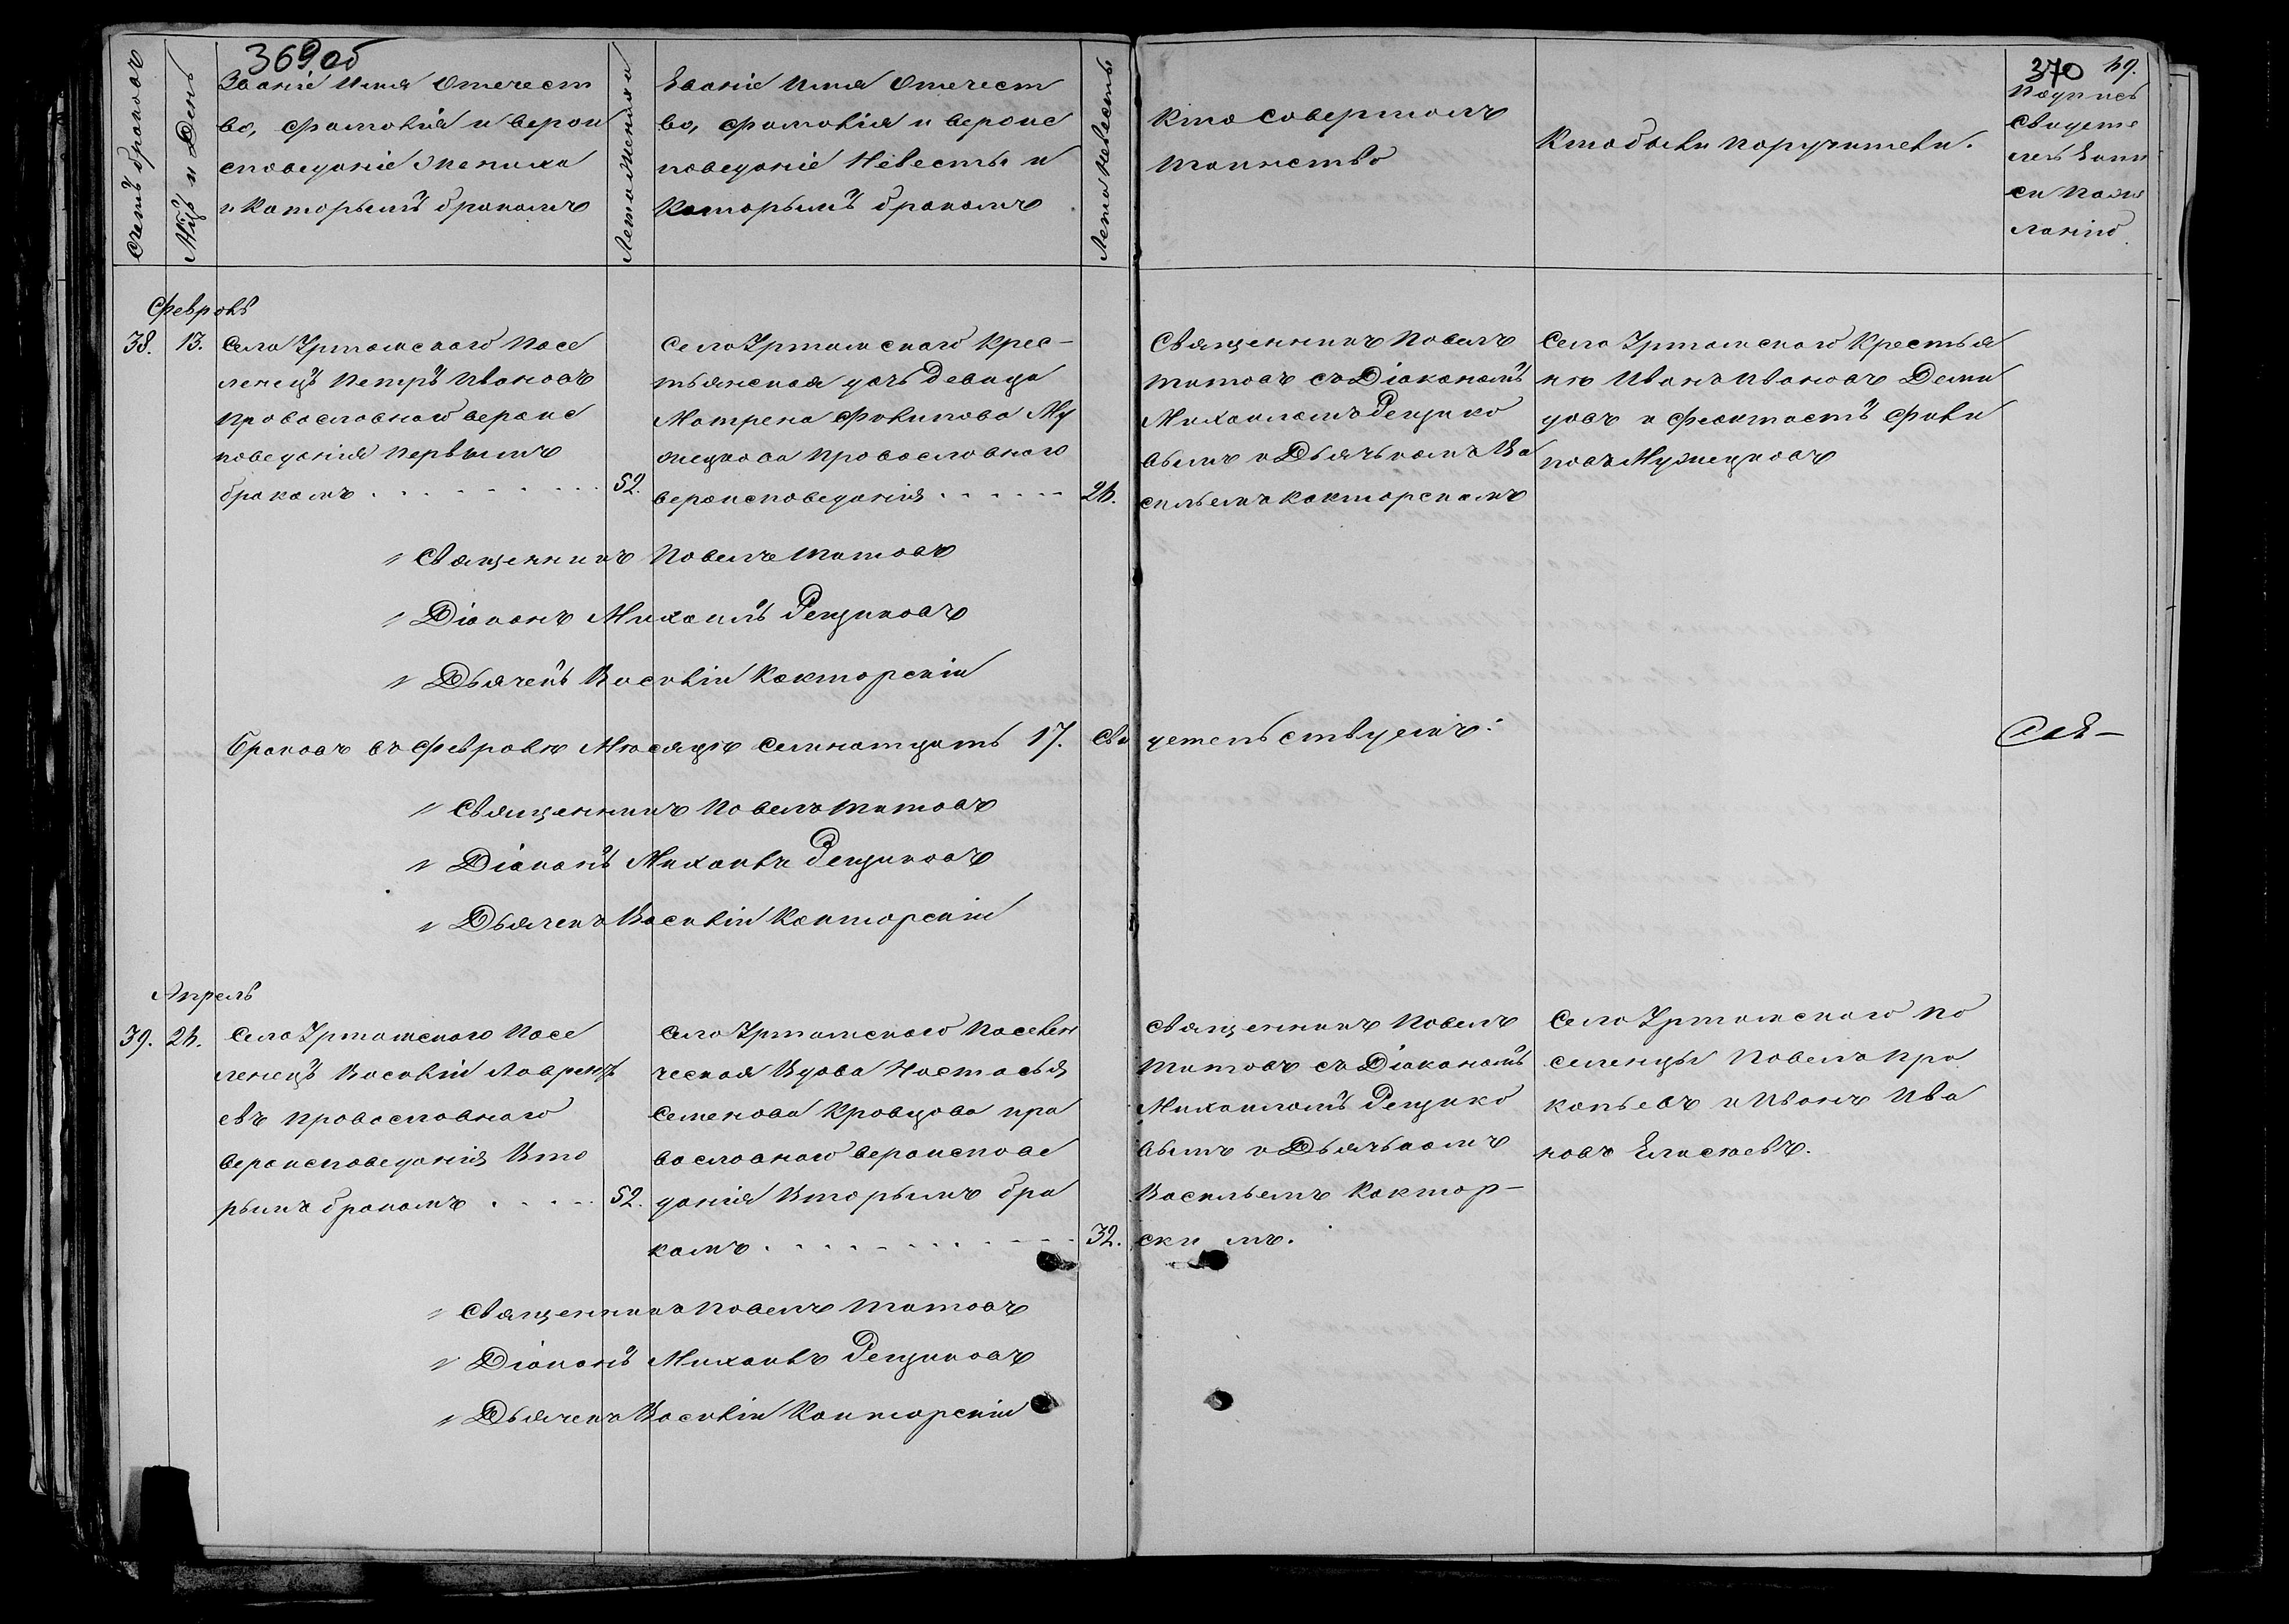 369 об
Счетъ браковъ
Мѣсяцъ и День
Званіе Имя Отечест
во, Фамилія и верои
споведаніе Жениха
и Которымъ бракомъ
Лета Жениха
Званіе Имя Отечест
во, Фамилія и вероис
поведаніе Невесты и
Которымъ бракомъ
Лета Невесты
Кто совершалъ
таинство
Кто были поручители.
370
49.
Подпись
свидете
лей Запи
си по же
ланію
Февраль
38. 13. Села Уртамскаго Посе
ленецъ Петръ Ивановъ
Православнаго вероис
поведанія первымъ
бракомъ . . . . . . . . . 52.
Села Уртамскаго Крес-
тьянская дочь девица
Матрена Филипова Му
жецкова Православнаго
вероисповеданія . . . . . . 24.
Священникъ Павелъ
Титовъ съ Діакономъ
Михаиломъ Рещико
вымъ и Дьячькомъ Ва
сильемъ Конторскимъ
Села Уртамскаго Крестья
не Иванъ Ивановъ Деми
довъ и Феоктистъ Фили
повъ Мужецковъ
Священникъ Павелъ Титовъ
Діаконъ Михаилъ Рещиковъ
Дьячекъ Василій Конторскій
Браковъ въ Феврале Месяце Семнатцать 17. Сви
детельствуемъ:
Священникъ Павелъ Титовъ
Діаконъ Михаилъ Рещиковъ
Дьячекъ Василій Конторскій
Апрель
39. 24. Села Уртамскаго Посе
ленецъ Василій Лаврентъ
евъ Православнаго
вероисповеданія Вто
рымъ бракомъ . . . . . 52.
Села Уртамскаго Поселен
ческая Вдова Настасья
Семенова Кравцова пра
вославнаго вероисповe
данія Вторымъ бра
комъ . . . . . . . . . . . 32.
Священникъ Павелъ
Титовъ съ Діакономъ
Михаиломъ Рещико
вымъ и Дьячькомъ
Васильемъ Контор-
скимъ.
Села Уртамскаго По
селенцы Павелъ Про
копьевъ и Иванъ Ива
новъ Елисеевъ.
Священникъ Павелъ Титовъ
Діаконъ Михаилъ Рещиковъ
Дьячекъ Василій Конторскій